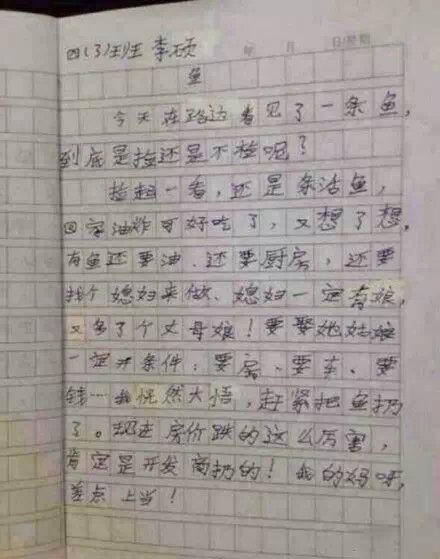 四(3)班 李硕
年 月 日 星期
鱼
今天在路边看见了一条鱼,
到底是捡还是不检呢?
捡起一看,还是条活鱼,
回家油炸可好吃了,又想了想,
有鱼还要油、还要厨房,还要
找个媳妇来做、媳妇一定有娘,
又多了个丈母娘!要娶她姑娘
一定开条件:要房、要车、要
钱…我恍然大悟,赶紧把鱼扔
了。现在房价跌的这么厉害,
肯定是开发商扔的!我的妈呀,
差点上当!